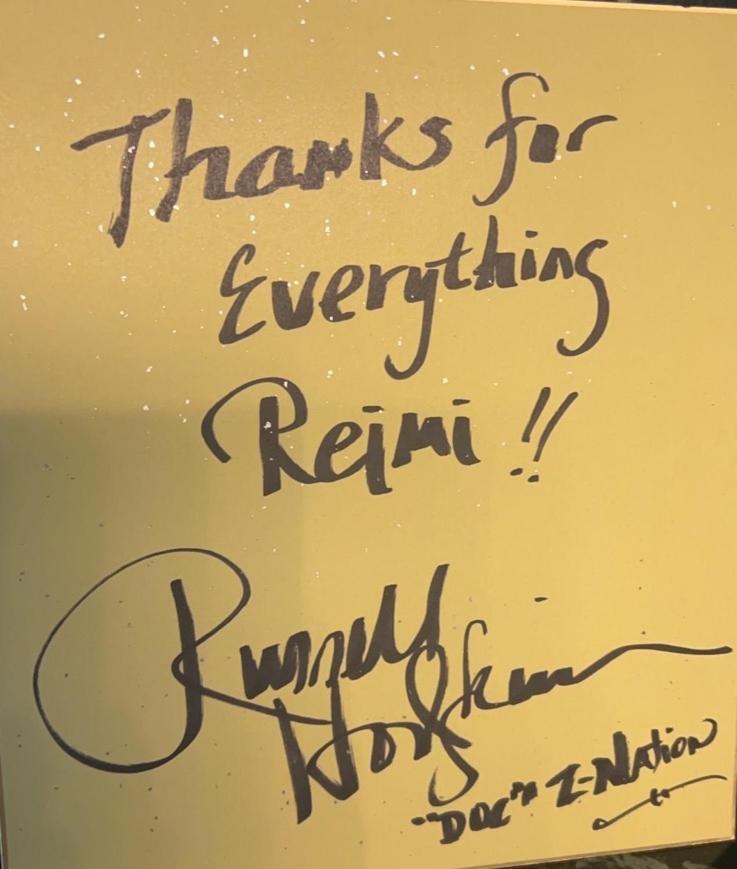 Thanks for
Everything
Reimi !!
Russell
Hodgkinson
"DOC" Z-Nation